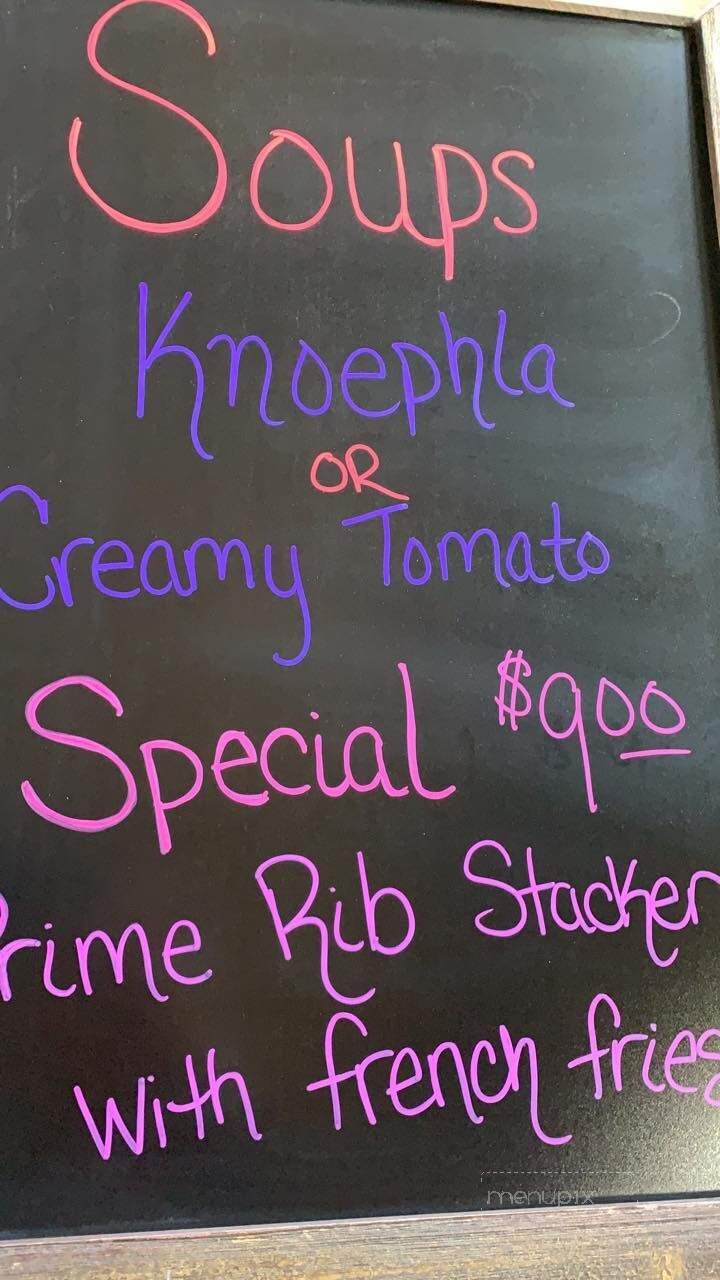 Soups
Knoephla
OR
Creamy Tomato
Special $900
Prime Rib Stacker
with french fries
menupix